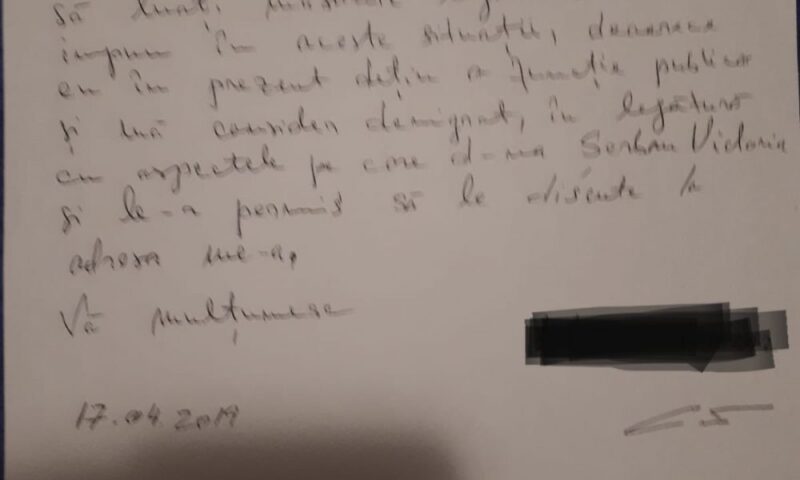 să luați măsurile
impun în aceste situații, deoarece
eu în prezent dețin o funcție publica
și mă consider denigrat, în legătură
cu aspectele pe care d-na Serban Victoria
și le-a permis să le discute la
adresa me-a,
Vă mulțumesc
17.04.2019